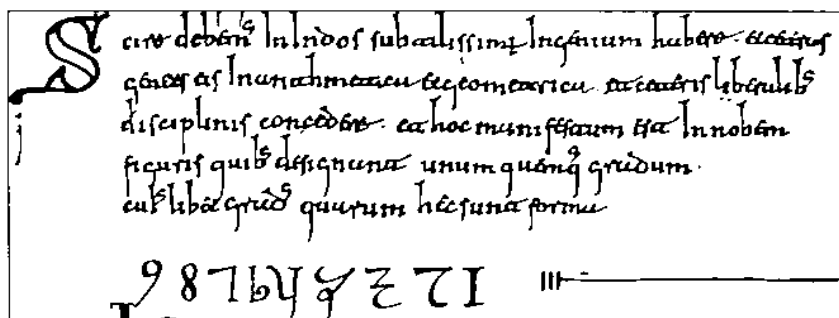 Scire debem᾽ In Indos subtilissimū Ingenium habere et ceteras
gentes eis In arithmetica et geometrica et ceteris liberalib᾽
disciplinis concedere et hoc manifestum est In nobem
figuris quib᾽ designant unum quenq᾽ gradum
cui᾽libet grad᾽ quarum hec sunt forma
9 8 7 6 5 4 3 2 1